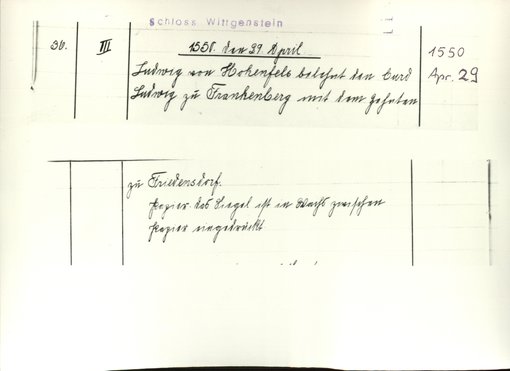 Schloss Wittgenstein
36. III 1550. den 29. April 1550
Ludwig von Hohenfels belehnt den Curd Apr. 29
Ludwig zu Frankenberg mit dem Zehnten
zu Friedensdorf.
Papier. das Siegel ist in Wachs zwischen
Papier eingedrückt